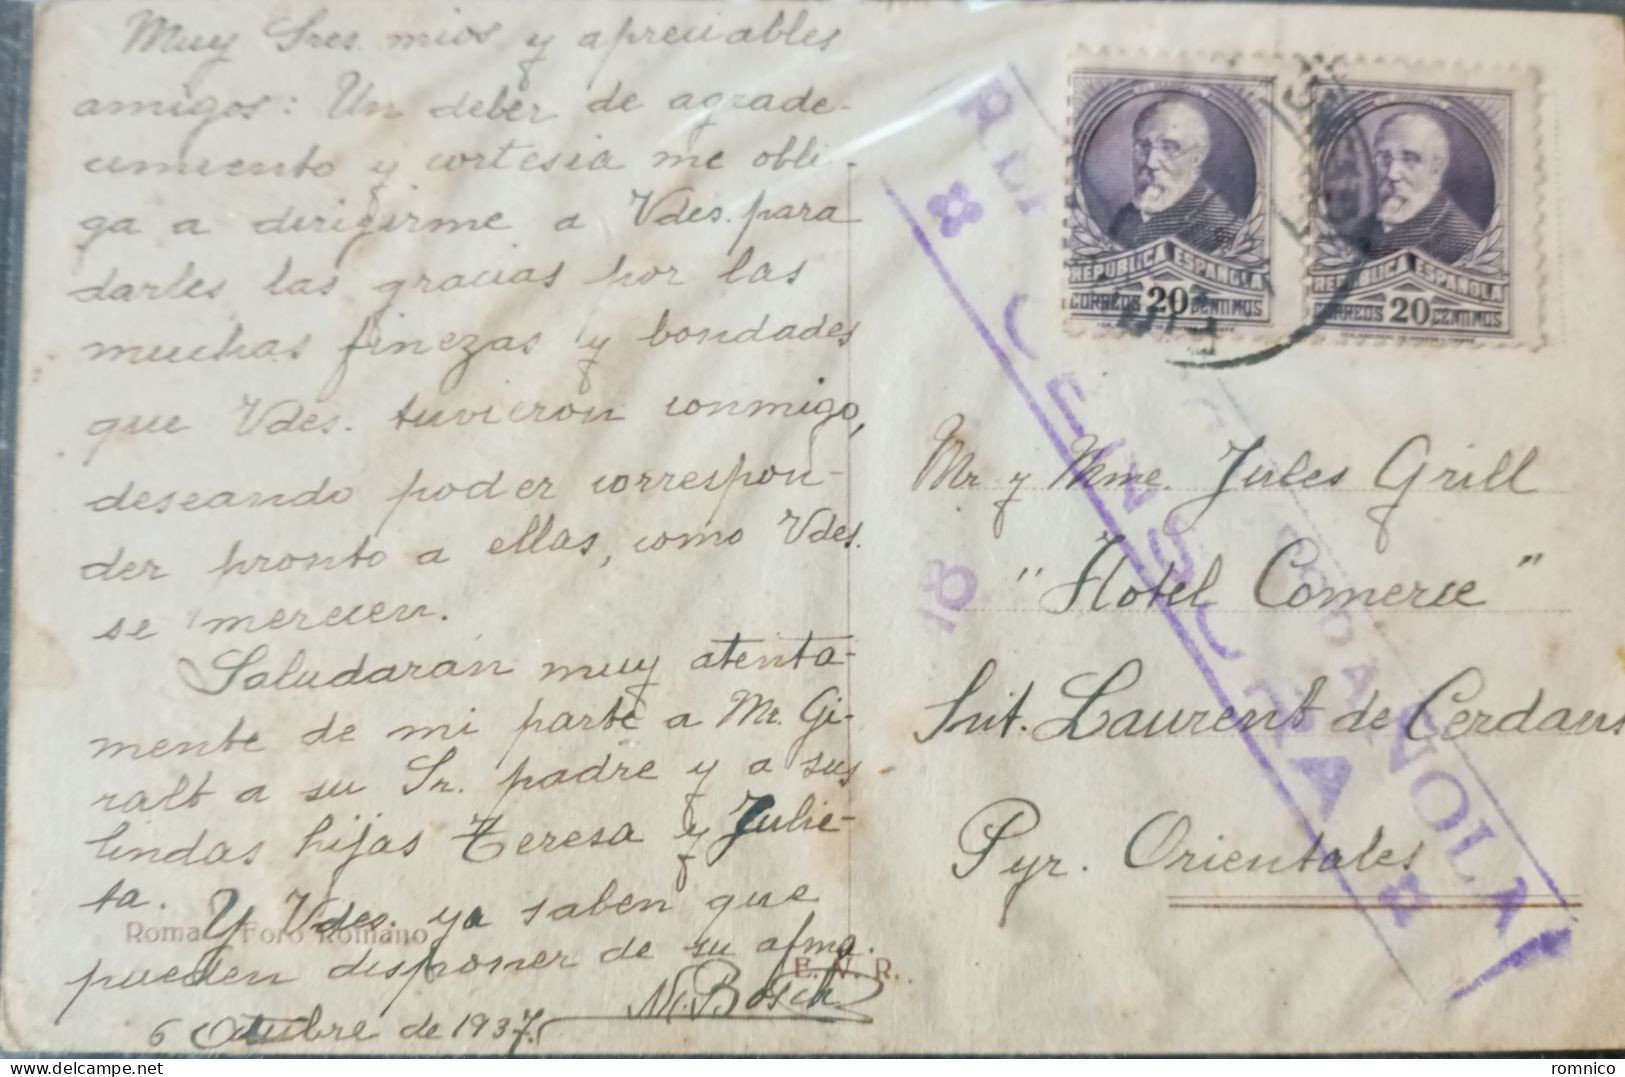 Muy Sres. mios y apreciables
amigos: Un deber de agrade-
cimiento y cortesia me obli-
ga a dirigirme a Vdes. para
darles las gracias por las
muchas finezas y bondades
que Vdes. tuvieron conmigo,
deseando poder correspon-
der pronto a ellas, como Vdes.
se merecen.
Saludarán muy atenta-
mente de mi parte a Mr. Gi-
ralt a su Sr. padre y a sus
lindas hijas Teresa y Julie-
ta. Y Vdes. ya saben que
pueden disponer de su afma.
M. Bosch
6 Octubre de 1937.
Roma - Foro Romano
E. V. R.
REPUBLICA ESPAÑOLA
CORREOS 20 CENTIMOS
REPUBLICA ESPAÑOLA
CORREOS 20 CENTIMOS
CENSURA
ESPAÑOLA
18
Mr y Mme. Jules Grill
"Hotel Comerce"
Snt. Laurent de Cerdans
Pyr. Orientales
delcampe.net
romnico